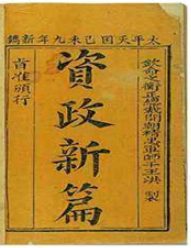 太平天囯己未九年新鐫
欽命文衡正總裁開朝精忠軍師干王洪製
資政新篇
旨准頒行